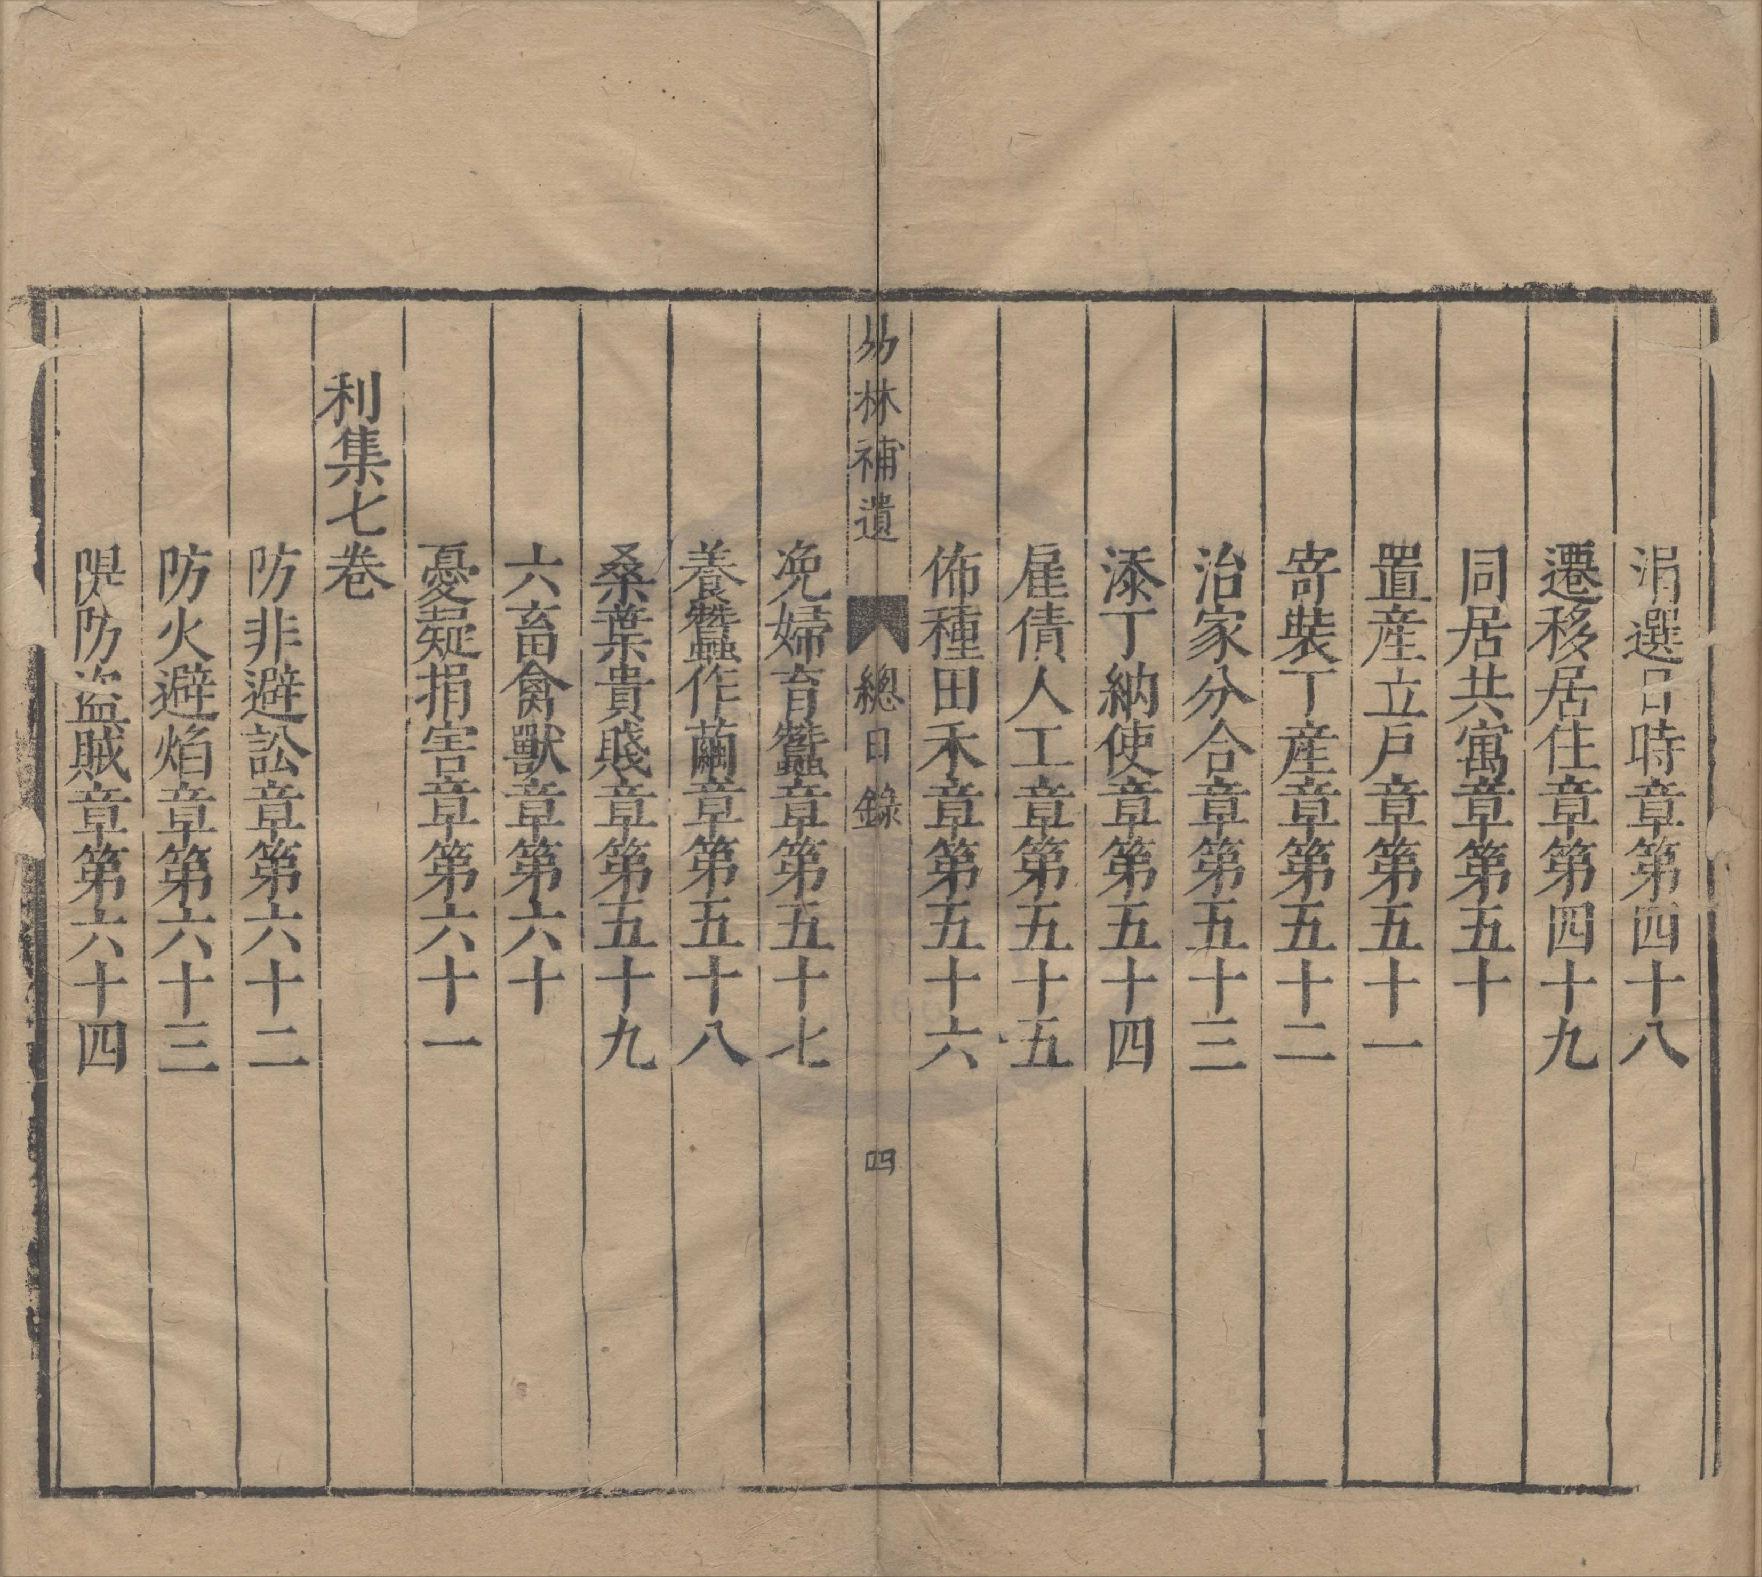 涓選日時章第四十八
遷移居住章第四十九
同居共寓章第五十
置産立戶章第五十一
寄裝丁産章第五十二
治家分合章第五十三
添丁納使章第五十四
雇倩人工章第五十五
佈種田禾章第五十六
易林補遺 總目錄 四
浼婦育蠶章第五十七
養蠶作繭章第五十八
桑葉貴賤章第五十九
六畜禽獸章第六十
憂疑捐害章第六十一
利集七卷
防非避訟章第六十二
防火避焰章第六十三
隄防盜賊章第六十四